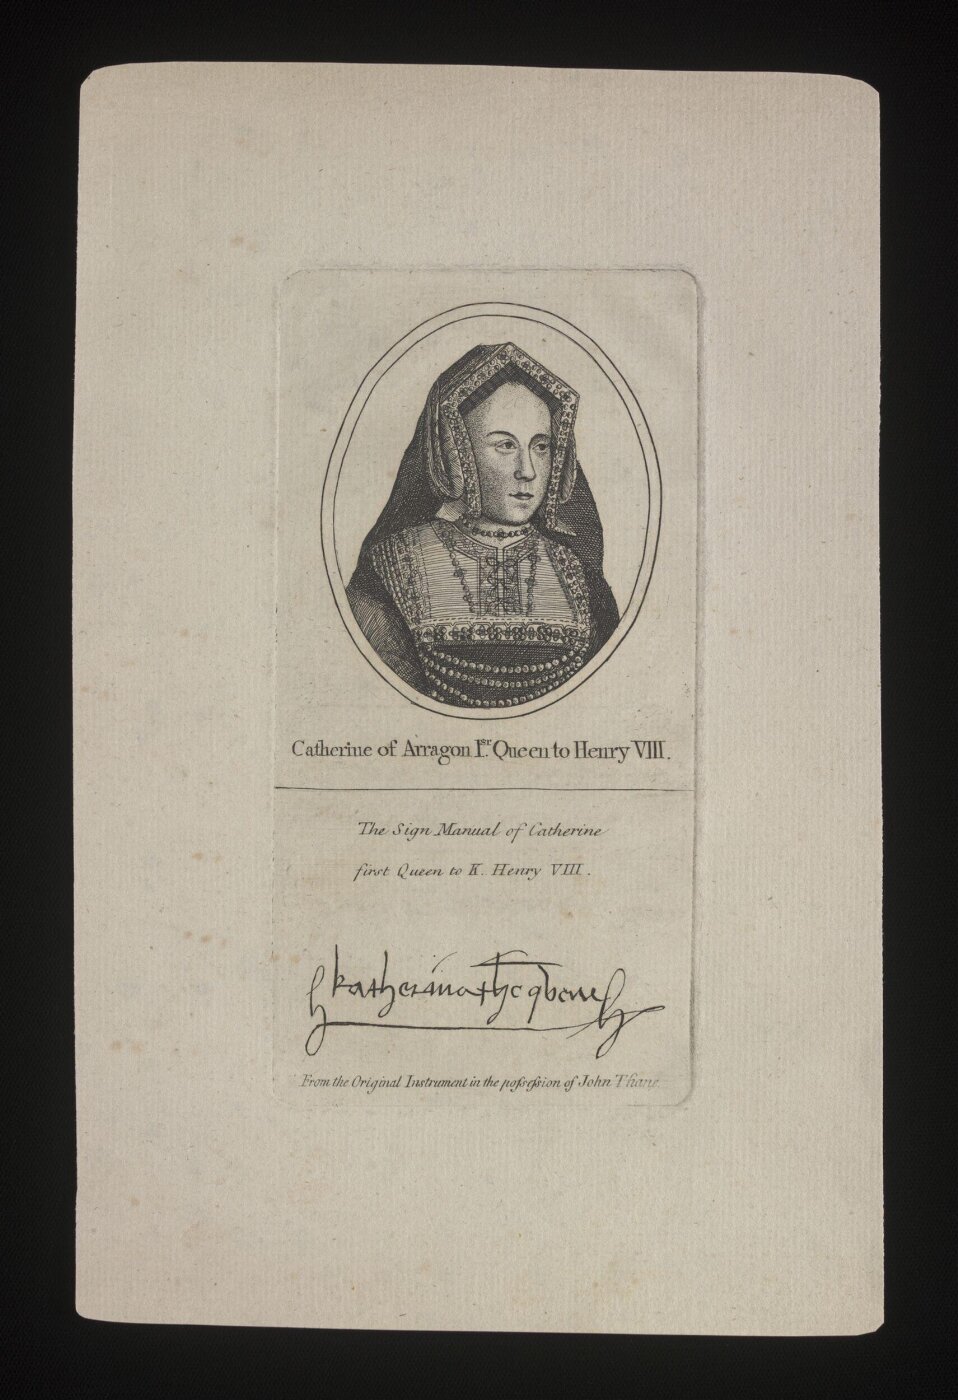 Catherine of Arragon Iſt. Queen to Henry VIII.
The Sign Manual of Catherine
first Queen to K. Henry VIII.
katherina the qwene
From the Original Instrument in the poſseſsion of John Thane